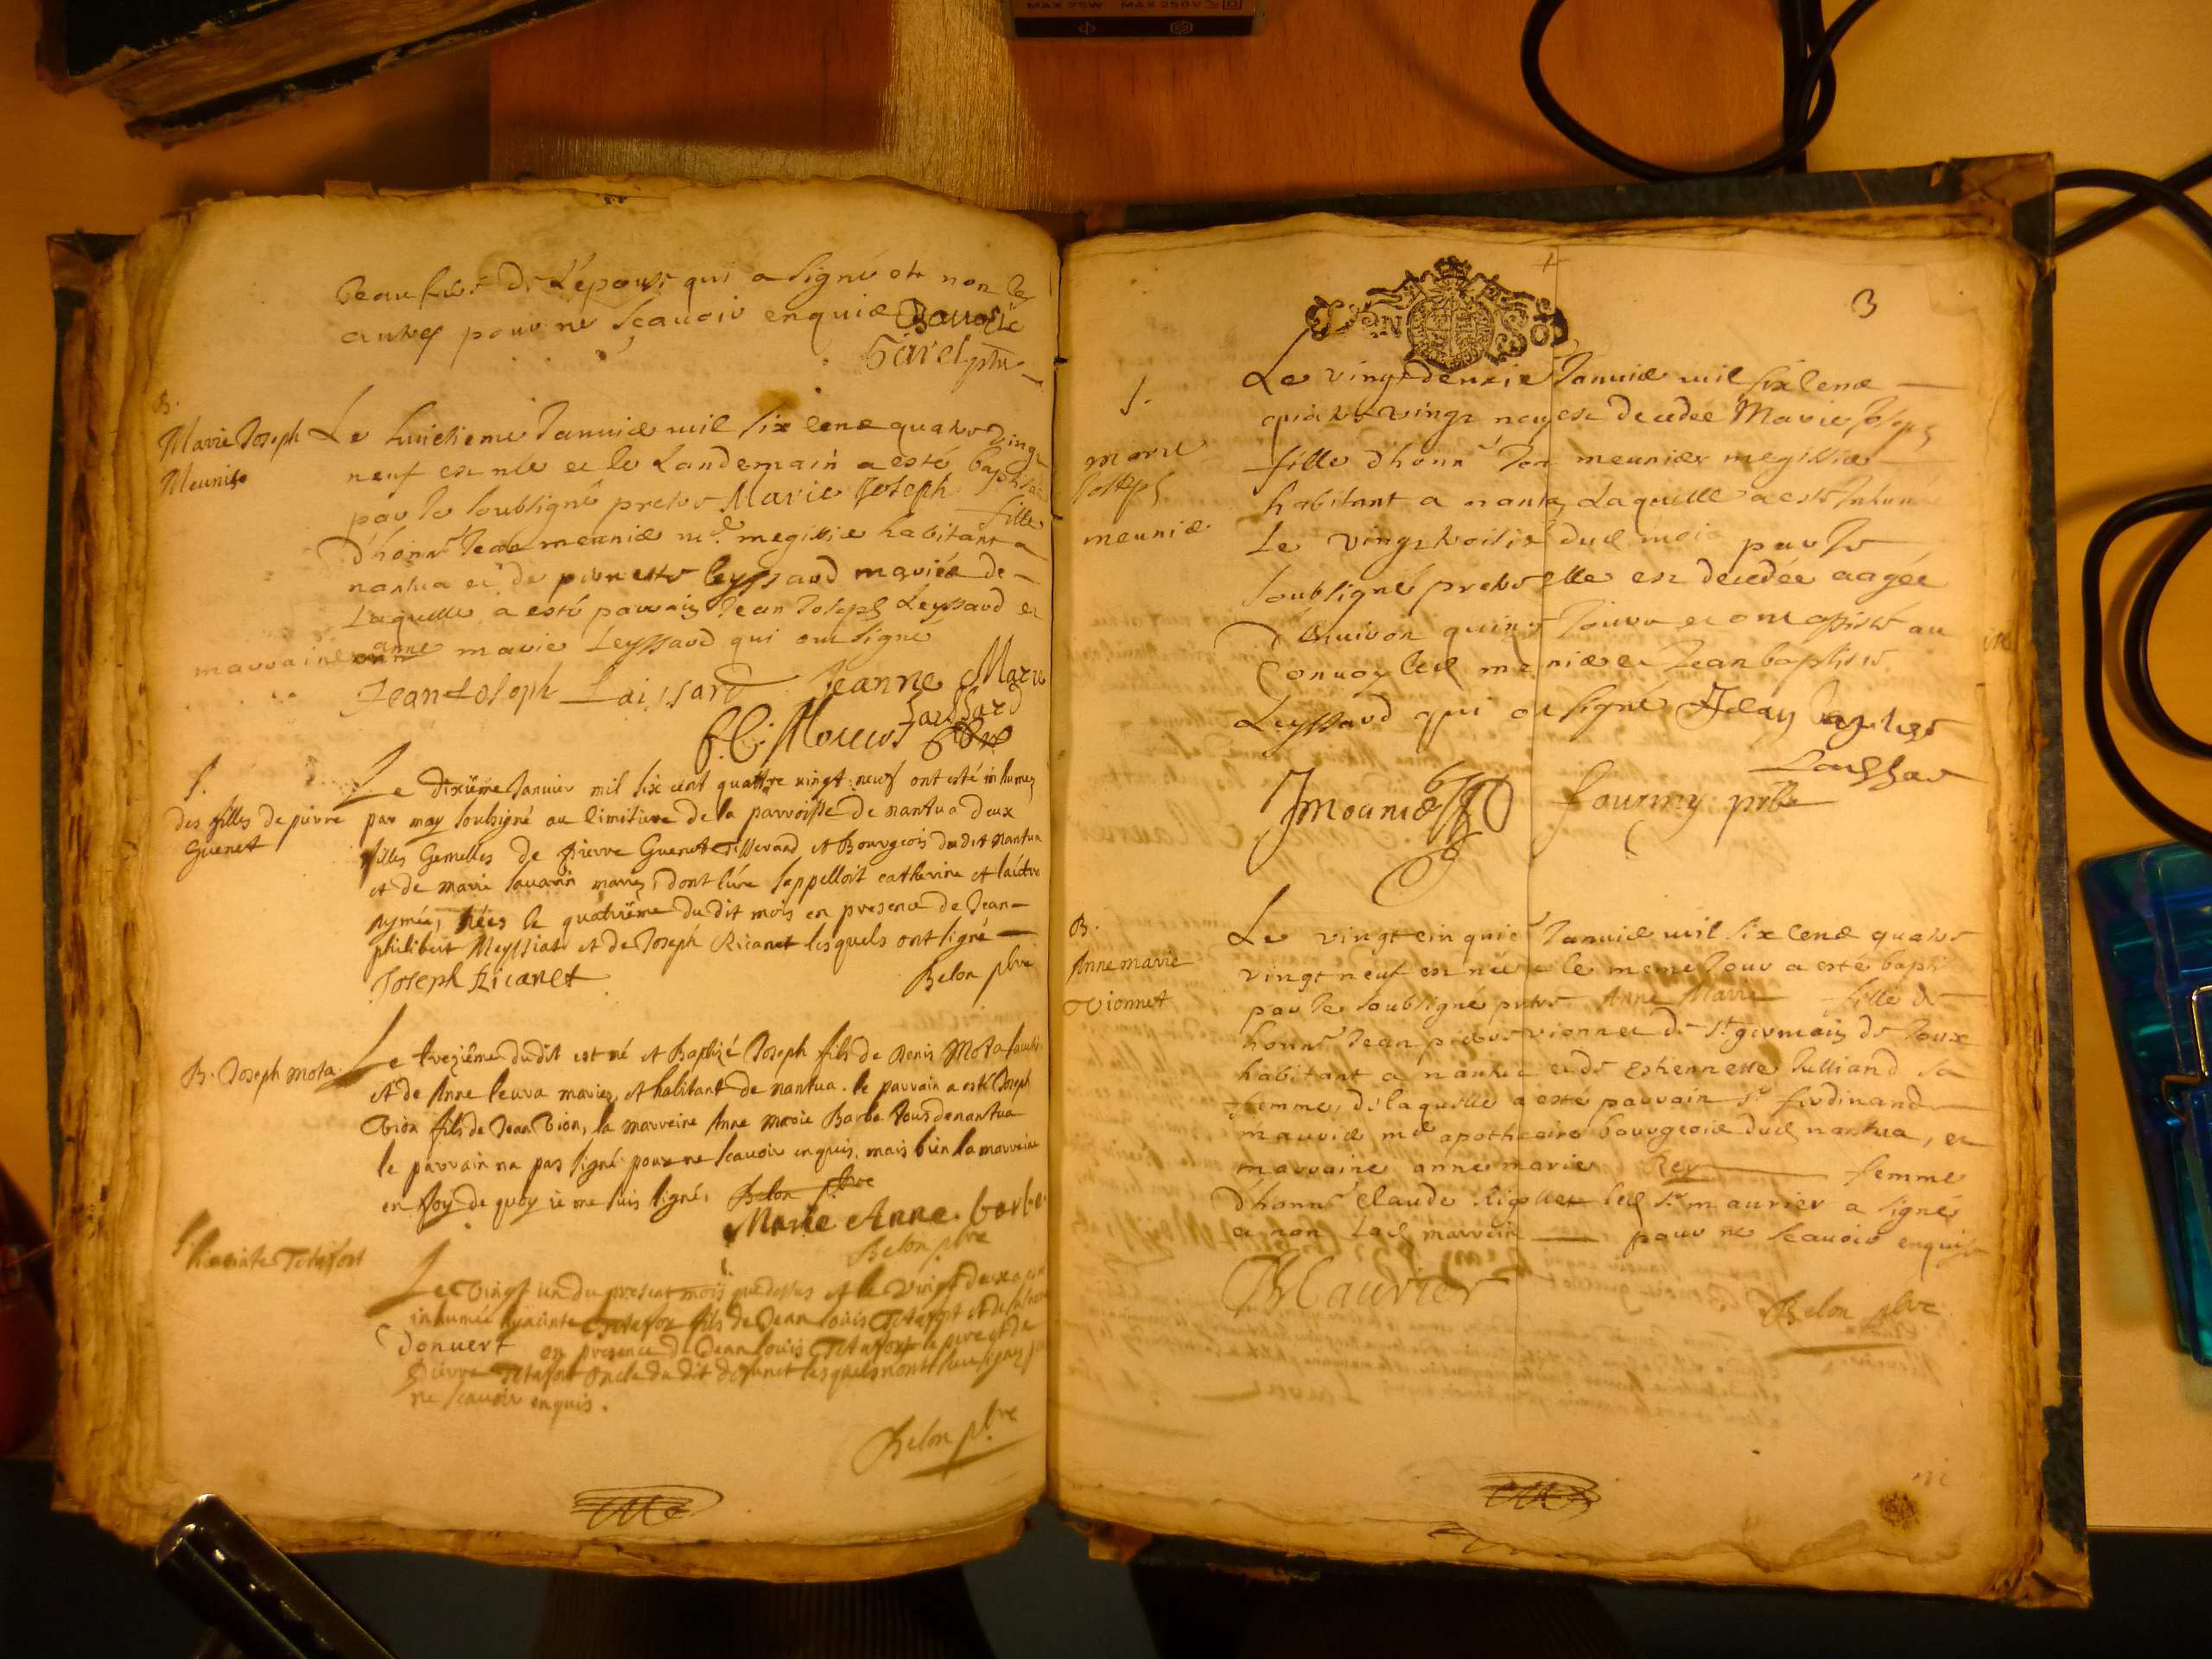 MAX 75W MAX 250V
beaufrere de L'epouse qui a signé et non les
autres pour ne scauoir enquis
B.
Marie Joseph
Meunier
Le huictieme Januier mil six cent quatre vingt
neuf est née et le Landemain a esté baptisée
par le soubsigné pretre Marie Joseph fille
d'honn^r Jean meunier m^d megissier habitant a
nantua et de pierrette leyssard mariés de
Laquelle a esté parrain Jean Joseph Leyssard et
marraine anne marie Leyssard qui ont signé
Jean Joseph Laissard Jeanne Marie
Laissard
S.
des filles de pierre
Guenet
Le dixiéme Januier mil six cent quattre vingt neuf ont esté inhumez
par moy soubsigné au cimitiere de la parroisse de nantua deux
filles Gemelles de Pierre Guenet Tisserand et Bourgeois du dit nantua
et de marie sauarin mariez, dont l'une s'appelloit catherine et l'autre
nées le quatriéme du dit mois en presence de Jean-
philibert Meyssiat et de Joseph Ricanet lesquels ont signé
Joseph Ricanet Belon pbre
B. Joseph mota.
Le treziéme du dit est né et Baptizé Joseph fils de Denis Mota
et de Anne leura mariez, et habitant de nantua. le parrain a esté Joseph
Vion fils de Jean Vion, la marreine Anne marie Barbe tous de nantua
le parrain na pas signé pour ne scauoir enquis, mais bien la marreine
en foy de quoy ie me suis signé, Belon pbre
Marie Anne. barbe.
Belon pbre
S.
hiacinte Tetafort
Le vingt un du present mois que dessus et le vingt deux a esté
inhumée hiacinte Tetafort fils de Jean louis Tetafort et de
donuert en presence de Jean louis Tetafort le pere et de
pierre Tetafort oncle du dit defunct lesquels n'ont sceu signer pour
ne scauoir enquis.
Belon pbre
3
S.
marie
Joseph
meunier.
Le vingtdeuxie^e Januier mil six cent
quatre vingt neuf est decedée Marie Joseph
fille d'honn^r Jean meunier megissier
habitant a nantua Laquelle a esté Inhumée
Le vingt troisie^e dud mois par le
soubsigné pretre elle est decedée aagée
d'enuiron quinze Jours et ont assisté au
Conuoy led meunier et Jean baptiste
Leyssard qui ont signé Jean baptiste
Laissard
J meunier Fourny pbre
B.
Anne marie
Vionnet
Le vingt cinquie^e Januier mil six cent quatre
vingt neuf est née et le meme Jour a esté bapti
par le soubsigné pretre Anne Marie fille de
honn^r Jean pierre vionnet de s^t germain de Joux
habitant a nantua et de Estiennette Julliand sa
femme, de laquelle a esté parrain s^r ferdinand
maurier m^d apothicaire bourgeois dud nantua, et
marraine anne marie Rey femme
d'honn^r Claude Ricollet led s^r maurier a signé
et non Lad marrein pour ne scauoir enquise
Maurier
Belon pbre